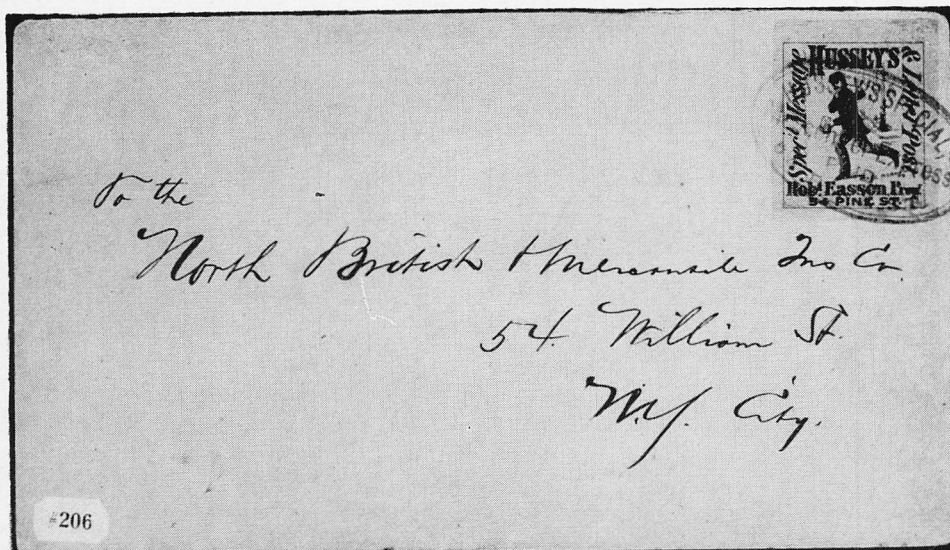 HUSSEY'S
Spec'l Message
& Letter Post
Robt Easson Prop.
54 PINE ST.
HUSSEY'S SPECIAL
To the
North British & Mercantile Ins Co.
54. William St.
N.Y. City.
#206